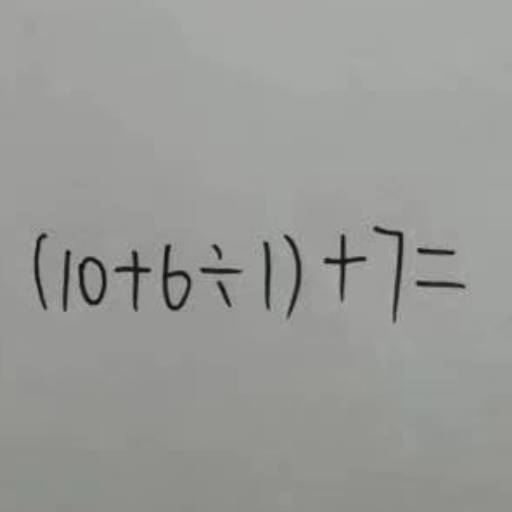 (10+6÷1)+7=